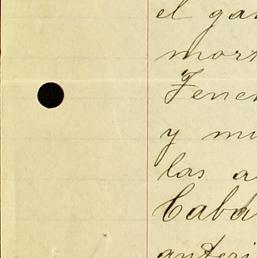 el gan
morz
Tenen
y mu
las a
Caba
anteri